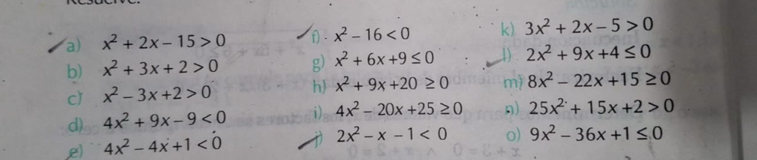 Resuelve.
a) x² + 2x − 15 > 0
b) x² + 3x + 2 > 0
c) x² − 3x + 2 > 0
d) 4x² + 9x − 9 < 0
e) 4x² − 4x + 1 < 0
f) x² − 16 < 0
g) x² + 6x + 9 ≤ 0
h) x² + 9x + 20 ≥ 0
i) 4x² − 20x + 25 ≥ 0
j) 2x² − x − 1 < 0
k) 3x² + 2x − 5 > 0
l) 2x² + 9x + 4 ≤ 0
m) 8x² − 22x + 15 ≥ 0
n) 25x² + 15x + 2 > 0
o) 9x² − 36x + 1 ≤ 0